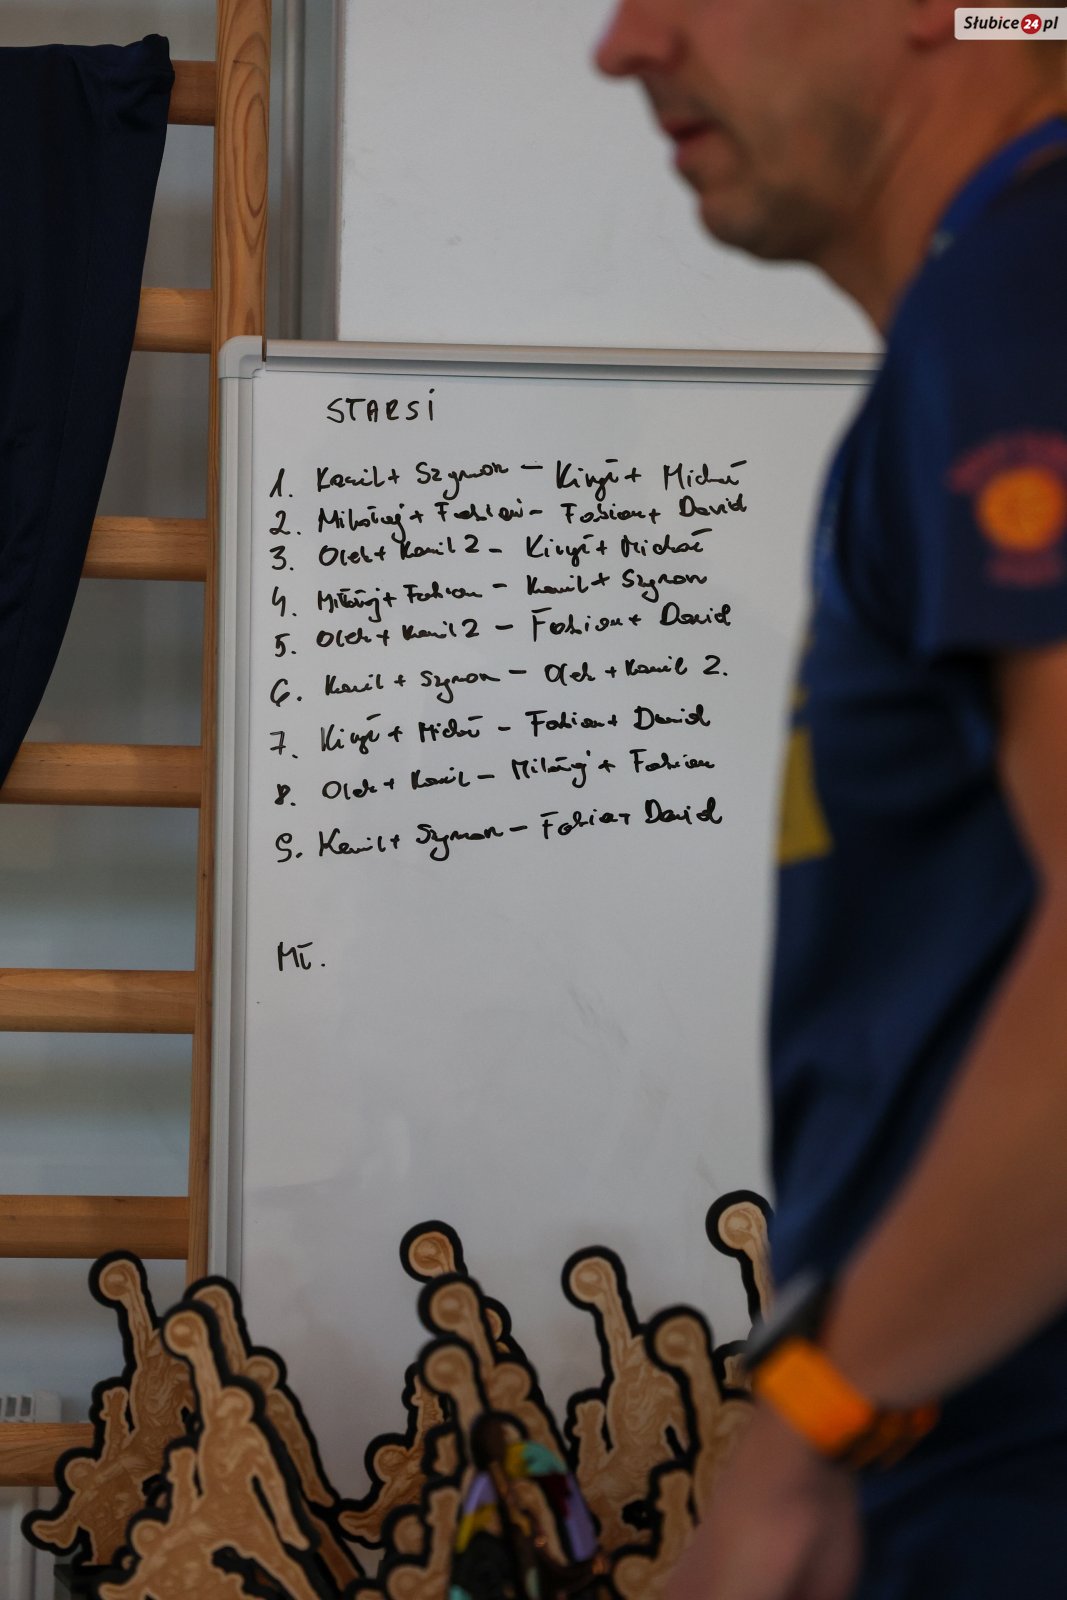 Słubice24.pl
STARSI
1. Kamil + Szymon - Kirył + Michał
2. Mikołaj + Fabian - Fabian + David
3. Olek + Kamil 2 - Kirył + Michał
4. Mikołaj + Fabian - Kamil + Szymon
5. Olek + Kamil 2 - Fabian + David
6. Kamil + Szymon - Olek + Kamil 2.
7. Kirył + Michał - Fabian + David
8. Olek + Kamil - Mikołaj + Fabian
9. Kamil + Szymon - Fabian David
Mł.